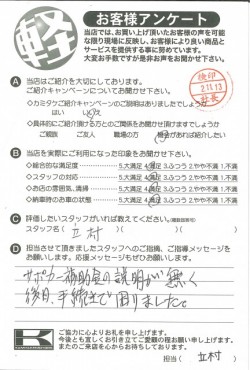 軽
お客様アンケート
当店では、お買い上げ頂いたお客様の声を可能
な限り現場に反映し、お客様により良い商品と
サービスを提供する事に努めています。
大変お手数ですが是非お声をお聞かせ下さい。
A 当店はご紹介を大切にしております。
ご紹介キャンペーンについてお聞かせ下さい。
・カミタケご紹介キャンペーンのご説明はありましたでしょうか
はい いいえ
・具体的にご紹介頂ける方とのご関係をお聞かせ頂けますでしょうか
ご親族 ご友人 職場の方 機会があれば紹介したい
検印
2.11.13
B 当店を実際にご利用になった印象をお聞かせ下さい。
◇総合的な満足度 5.大満足 4.満足 3.ふつう 2.やや不満 1.不満
◇スタッフの対応 5.大満足 4.満足 3.ふつう 2.やや不満 1.不満
◇お店の雰囲気、清掃 5.大満足 4.満足 3.ふつう 2.やや不満 1.不満
◇納車時のお車の状態 5.大満足 4.満足 3.ふつう 2.やや不満 1.不満
C 評価したいスタッフがいれば教えてください。
スタッフ名( 立村 )
D 担当させて頂きましたスタッフへのご指摘、ご指導メッセージをお
願い致します。応援メッセージもぜひお願い致します。
サポカー補助金の説明が無く
後日、手続きで困りました。
K
ご協力に心よりお礼を申し上げます。
今後とも宜しくお引き立てご愛顧の程お願い申し上げます。
またのご来店を心からお待ちしております。
担当( 立村 )